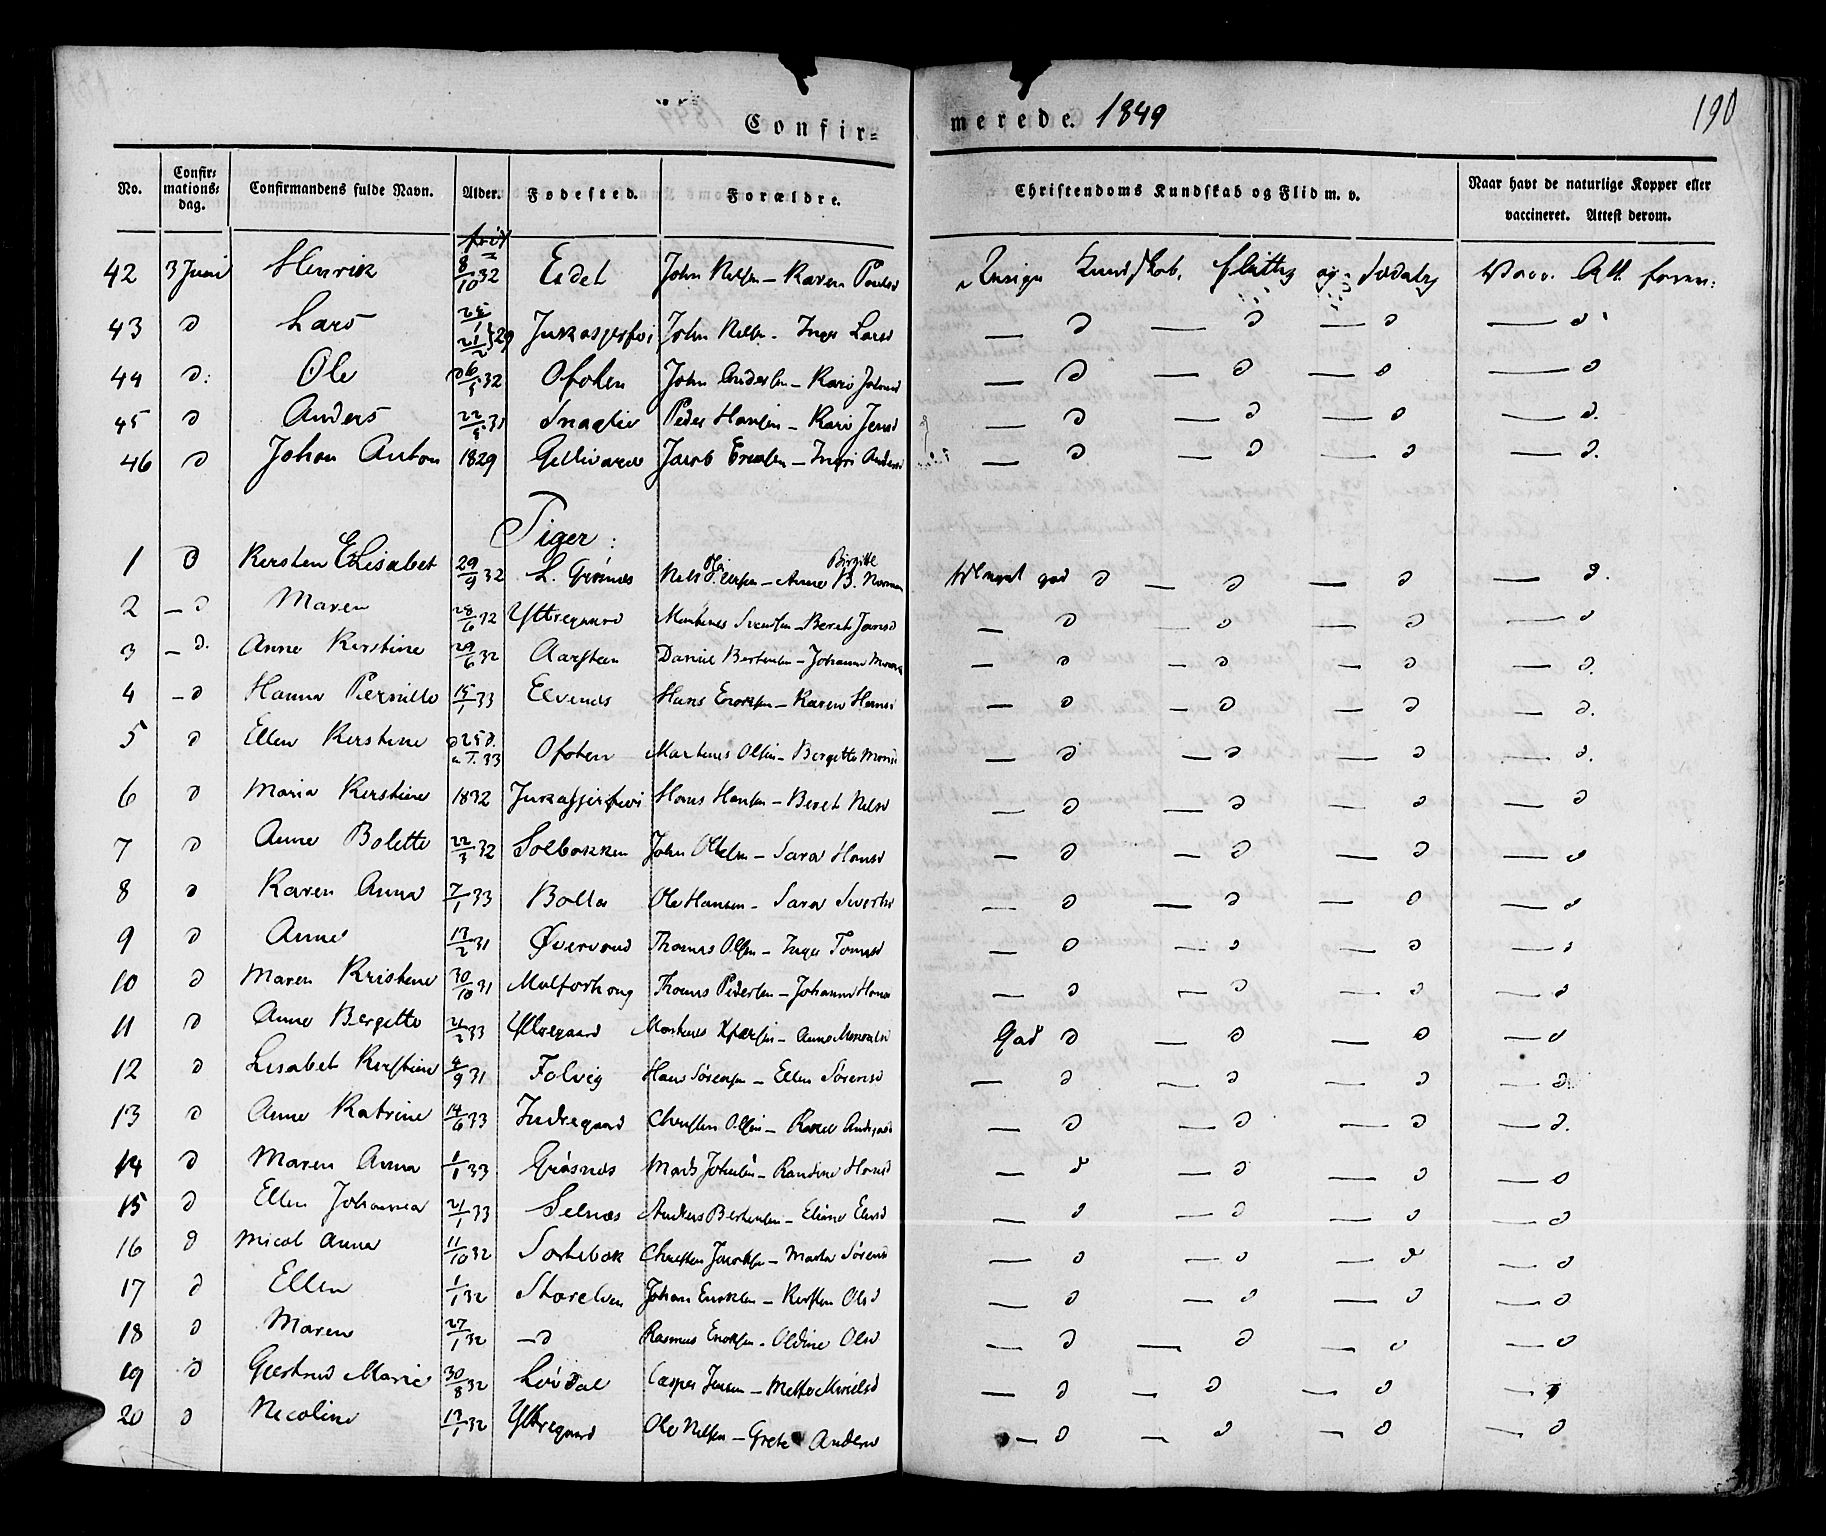 Confir-
merede. 1849
190
No.
Confir-
mations-
dag.
Confirmandens fulde Navn.
Alder.
Fødested.
Forældre.
Christendoms Kundskab og Flid m. v.
Naar havt de naturlige Kopper eller
vaccineret. Attest derom.
42 3 Juni Henrik 8/10 32 Eidet John Nilsen - Karen Poulsd Kundskab, flittig og sædelig Vacc. Att. forev:
43 d Lars 29 John Nilsen - Inger Larsd — d — d — d — d
44 d: Ole 6/5 32 Ofoten John Andersen - Kari — d — d — d — d
45 d Anders 22/5 31 Peder Hansen - Kari Jensd — d — d — d — d.
46 d Johan Anton 1829 Gellivare Jacob Ericksen - Ingri Andersd — d — d — d — d.
Piger:
1 d Kersten Elisabet 29/9 32 L. Grønnes Nils Pedersen - Anne B. Birgitte god d — d — d — d.
2 – d Maren 28/6 32 Yttregaard Martines Svendsen - Beret Jansd — d — d — d — d
3 – d. Anne Kerstine 29/6 32 Aarsteen Daniel Bertelsen - Johanna — d — d — d — d.
4 – d Hanna Pernille 15/1 33 Elvenes Hans Ericksen - Karen Hansd — d — d — d — d.
5 d Ellen Kerstine 33 Ofoten Martines Olsen - Bergette Monsd — d — d — d — d.
6 d Maria Kerstine 1832 Hans Hansen - Beret Nilsd — d — d — d — d
7 d Anne Bolette 22/3 32 Solbakken John - Sara Hansd — d — d — d — d
8 d Karen Anna 7/1 33 Bolta Ole Hansen - Sara Sivertsd — d — d — d — d
9 d Anne 17/2 31 Øvervand Thomas Olsen - Inger Tomasd — d — d — d — d
10 d Maren Kristine 30/10 31 Molforthong Thomas Pedersen - Johanna Hansd — d — d — d — d
11 d Anne Bergette 21/2 33 Yttregaard Martines - Anne God d — d — d — d
12 d Lisabet Kerstine 4/9 31 Folvig Hans Sørensen - Ellen Sørensd — d — d — d — d.
13 d Anne Katrine 14/6 33 Indregaard Christen Olsen - — d — d — d — d.
14 d Maren Anna 1/1 33 Grøsnes Mads Johnsen - Randine Hansd — d — d — d — d
15 d Ellen Johanna 21/1 33 Selnes Anders Bertelsen - Eliane — d — d — d — d
16 d Micol Anna 11/10 32 Sortebæk Christen Jacobsen - Marta Sørensd — d — d — d — d
17 d Ellen 1/1 32 Storelven Johan Ericksen - Kersten Olsd — d — d — d — d
18 d Maren 27/1 32 – d Rasmus Ericksen - Oldine Olsd — d — d — d — d
19 d Gjertrud Marie 30/8 32 Løvdal Casper Jensen - Mette Nielsd — d — d — d — d
20 d Nicoline 17/1 32 Yttregaard Ole Nilsen - Grete Andersd — d — d — d — d